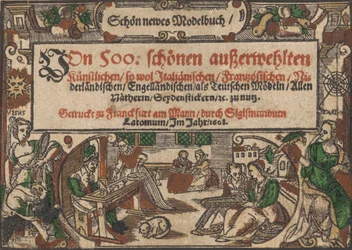 Schön newes Modelbuch/
VOn 500. schönen außerwehlten
Künstlichen/ so wol Italiänischen/ Frantzösischen/ Ni-
derländischen/ Engelländischen/ als Teutschen Mödeln/ Allen
Näherin/ Seydenstickern/ ꝛc. zu nutz.
Getruckt zu Franckfurt am Mayn/ durch Sigismundum
Latomum/ Im Jahr/ 1608.